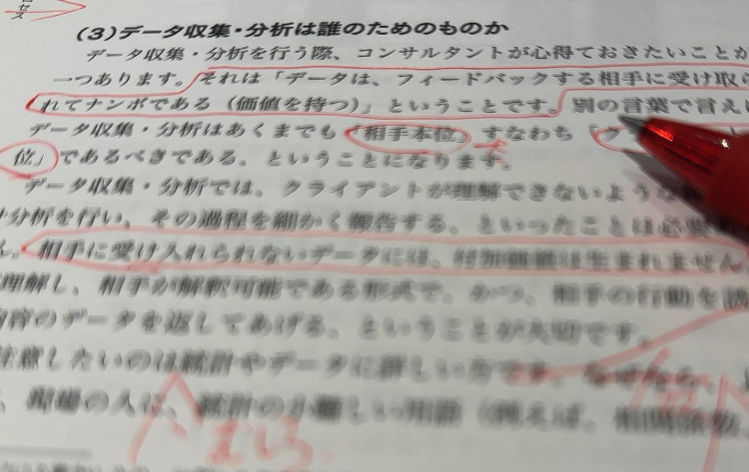 ロセス
(3)データ収集・分析は誰のためのものか
データ収集・分析を行う際、コンサルタントが心得ておきたいことが
一つあります。それは「データは、フィードバックする相手に受け取ら
れてナンボである（価値を持つ）」ということです。別の言葉で言えい
データ収集・分析はあくまでも「相手本位」すなわち「ク
位」であるべきである、ということになります。
データ収集・分析では、クライアントが理解できないような
分析を行い、その過程を細かく報告する、といったことは必要
ん。相手に受け入れられないデータには、付加価値は生まれません
理解し、相手が解釈可能である形式で、かつ、相手の行動を誘
内容のデータを返してあげる、ということが大切です。
注意したいのは統計やデータに詳しい方です。なぜなら、
、現場の人に、統計の小難しい用語（例えば、相関係数、
むしろ